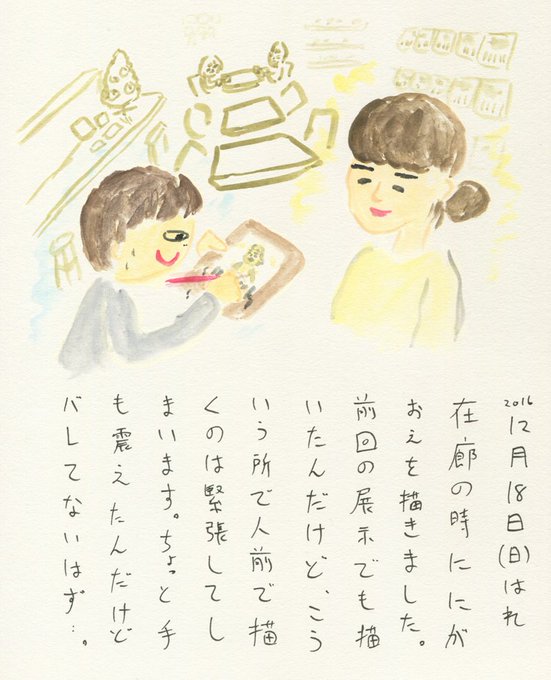 2016 12月18日(日)はれ
在廊の時ににが
おえを描きました。
前回の展示でも描
いたんだけど、こう
いう所で人前で描
くのは緊張してし
まいます。ちょっと手
も震えたんだけど
バレてないはず…。